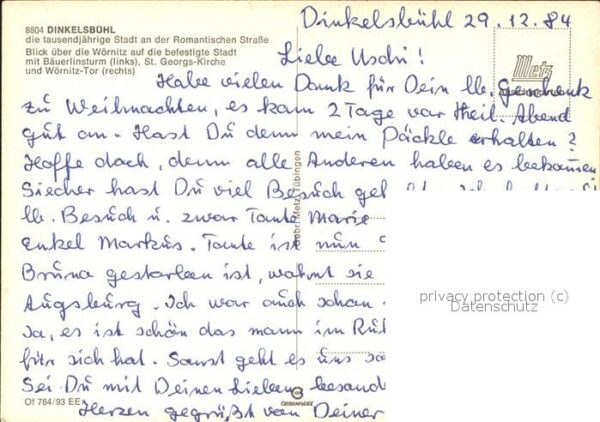 8804 DINKELSBÜHL
die tausendjährige Stadt an der Romantischen Straße
Blick über die Wörnitz auf die befestigte Stadt
mit Bäuerlinsturm (links), St. Georgs-Kirche
und Wörnitz-Tor (rechts)
Metz
Dinkelsbühl 29.12.84
Liebe Uschi!
Habe vielen Dank für Dein lb. Geschenk
zu Weihnachten, es kam 2 Tage vor Heil. Abend
gut an. Hast Du denn mein Päckle erhalten?
Hoffe doch, denn alle Anderen haben es bekommen
Siecher hast Du viel Besuch
lb. Besuch u. zwar Tante Marie
Enkel Markus. Tante ist nun
Bruna gestorben ist, wohnt sie
Augsburg. Ich war auch schon
Ja, es ist schön das mann im
für sich hat. Sonst geht es uns
Sei Du mit Deinen Lieben
Herzen gegrüßt von Deiner
Gebr. Metz Tübingen
Of 764/93 EE
privacy protection (c)
Datenschutz